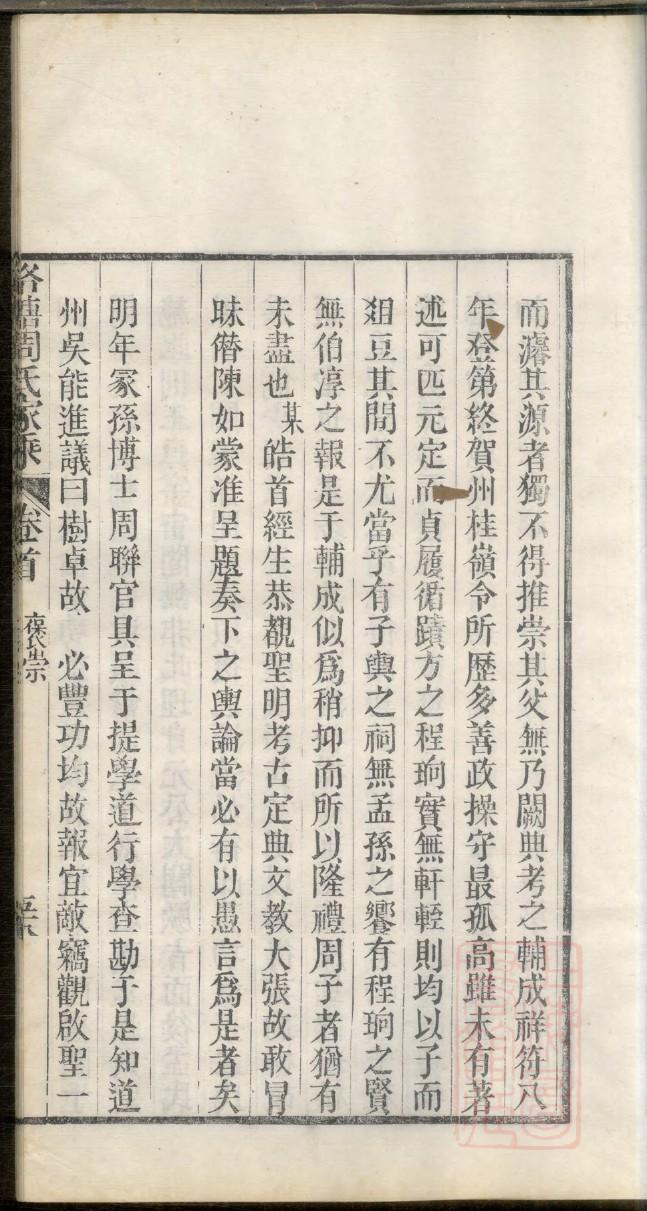 而濬其源者獨不得推崇其父無乃闕典考之輔成祥符八
年登第終賀州桂嶺令所歷多善政操守最孤高雖未有著
述可匹元定而貞履循蹟方之程珦實無軒輊則均以子而
俎豆其間不尤當乎有子輿之祠無孟孫之饗有程珦之賢
無伯淳之報是于輔成似爲稍抑而所以隆禮周子者猶有
未盡也某皓首經生恭覩聖明考古定典文教大張故敢冒
昧僭陳如蒙准呈題奏下之輿論當必有以愚言爲是者矣
明年冢孫博士周聯官具呈于提學道行學查勘于是知道
州吳能進議曰樹卓故必豐功均故報宜敵竊觀啟聖一
周氏家乘 卷首 褒崇